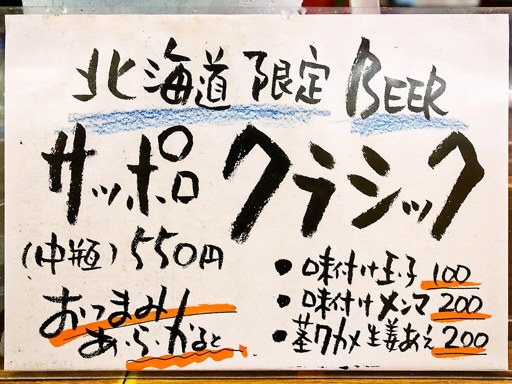 北海道限定 BEER
サッポロ クラシック
(中瓶) 550円
おつまみ
あ・ら・かると
• 味付け玉子 100
• 味付けメンマ 200
• 茎ワカメ生姜あえ 200